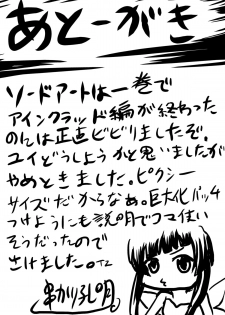 あとーがき
ソードアートは一巻で
アインクラッド編が終わった
のんは正直ビビりましたぞ。
ユイどうしようかと思いましたが
やめときました。ピクシー
サイズだからなぁ。巨大化パッチ
つけようにも説明でコマ使い
そうだったので
さけました。
串かつ孔明